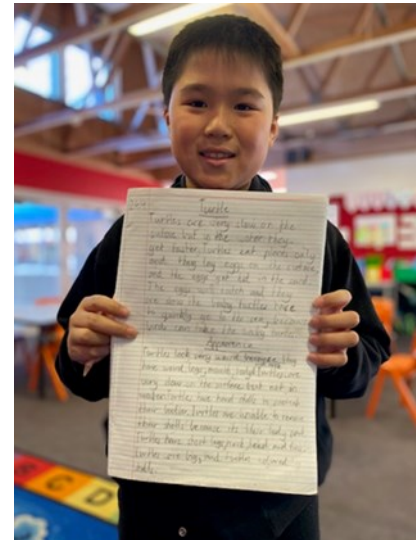 Turtle
Turtles are very slow on the
surface but in the water they
get faster. Turtles eat plants only
and they lay eggs on the surface
and the eggs get in the sand
The eggs and they
are slow the baby turtles have
to quickly go to the sea because
birds can take the baby turtles
Appearance
Turtles look very weird because they
have weird legs, mouth, body. Turtles are
very slow in the surface but not in
water. Turtles have hard shells to protect
their bodies. Turtles are unable to remove
their shells because its their body part
Turtles have short legs, neck, head and
Turtles are big, and turtles
shells.
C D